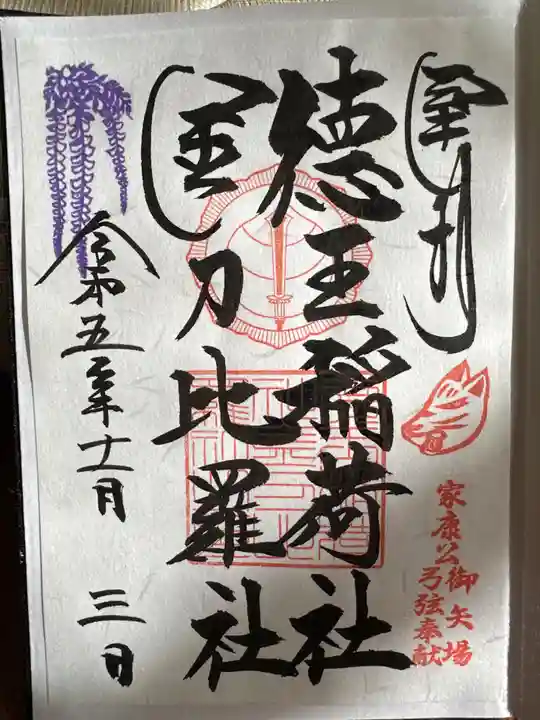 奉拝
家康公御矢場
弓弦奉献
徳王稲荷社
金刀比羅社
令和五年十一月
三日